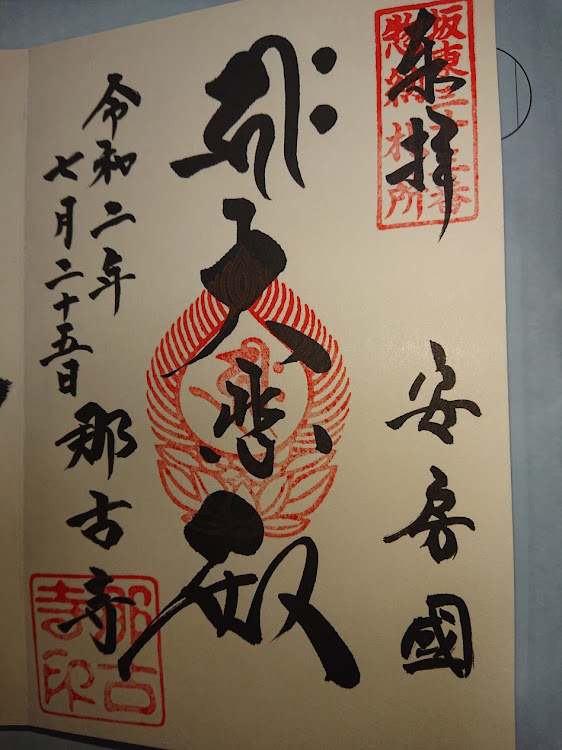 坂東三十三番
惣納札所
奉拝
安房國
大悲殿
令和二年
七月二十五日
那古寺
那古
寺印